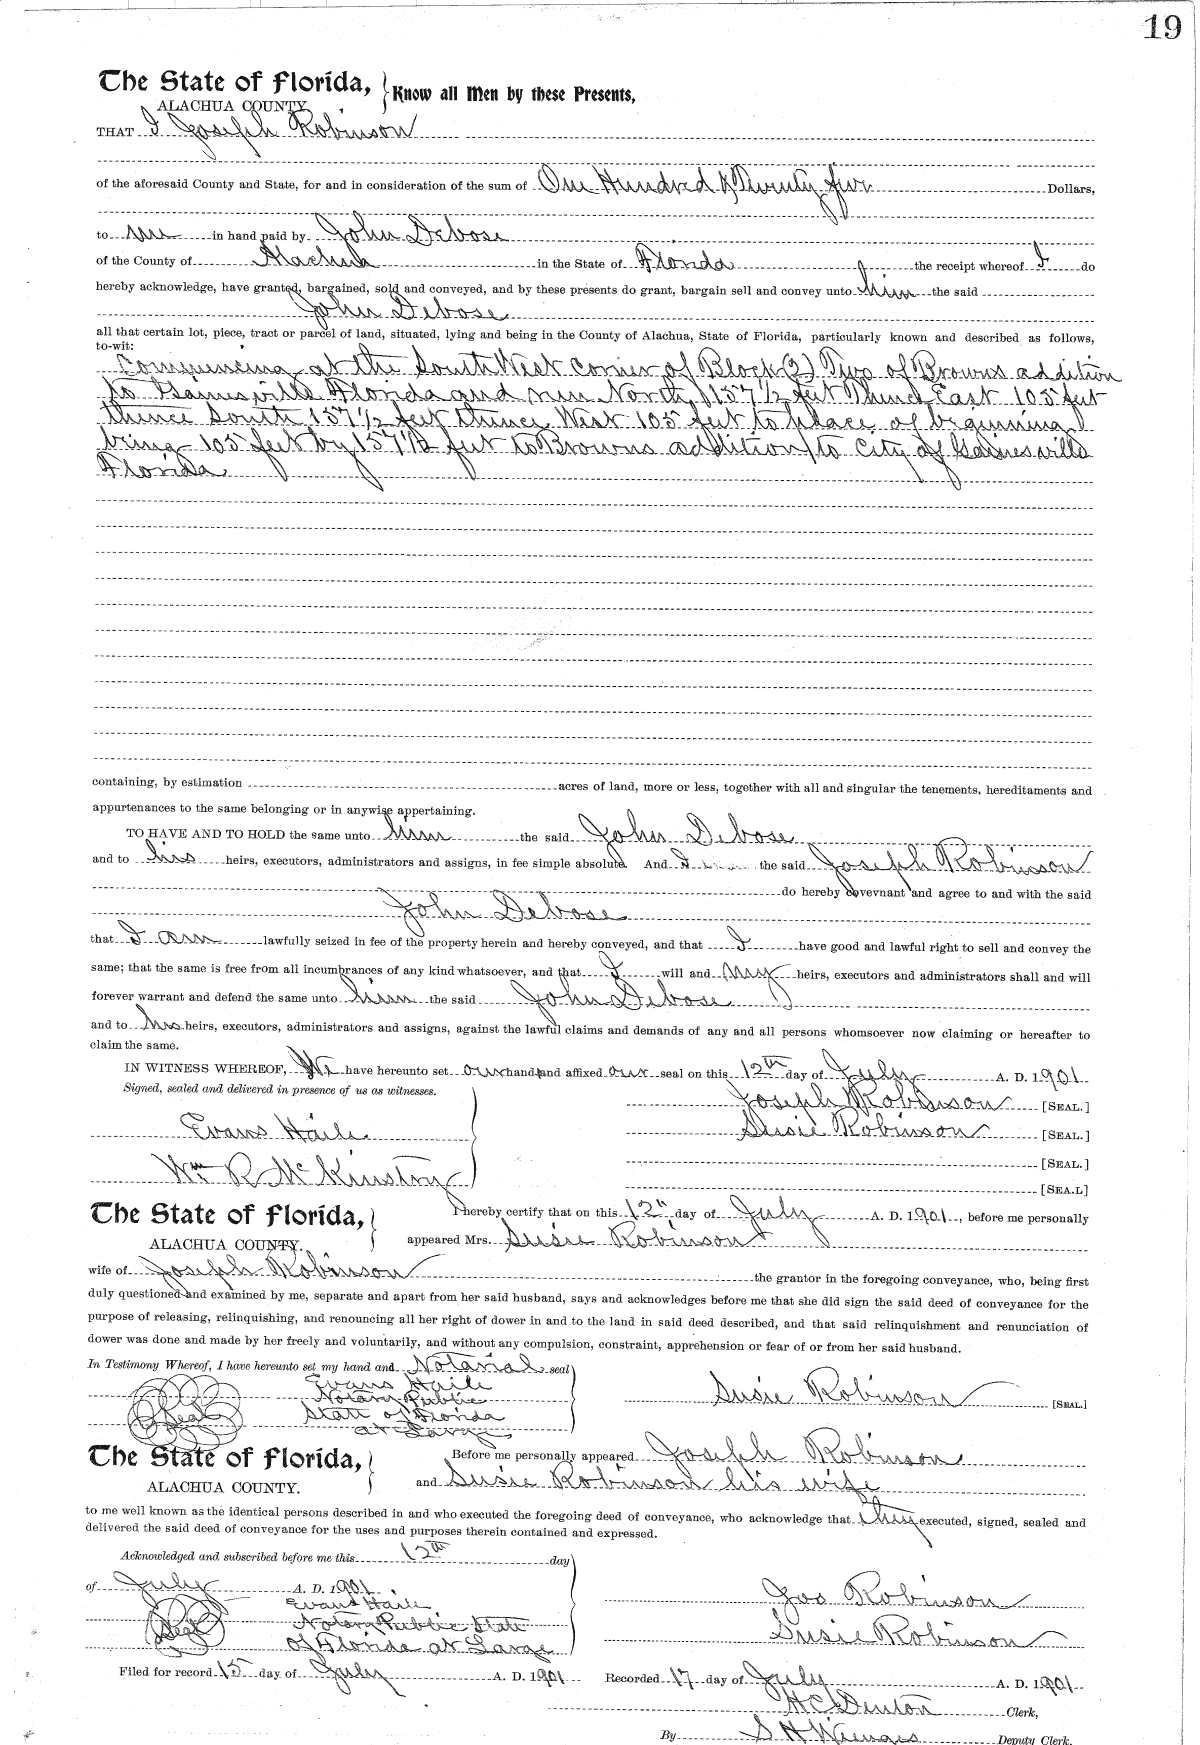 19
The State of Florida, } Know all Men by these Presents,
ALACHUA COUNTY
THAT I Joseph Robinson
of the aforesaid County and State, for and in consideration of the sum of One Hundred & Twenty five Dollars,
to me in hand paid by John Debose
of the County of Alachua in the State of Florida the receipt whereof I do
hereby acknowledge, have granted, bargained, sold and conveyed, and by these presents do grant, bargain sell and convey unto him the said
John Debose
all that certain lot, piece, tract or parcel of land, situated, lying and being in the County of Alachua, State of Florida, particularly known and described as follows,
to-wit:
Commencing at the South West Corner of Block (2) Two of Browns addition
to Gainesville Florida and run North 157 1/2 feet Thence East 105 feet
thence South 157 1/2 feet thence West 105 feet to place of beginning
being 105 feet by 157 1/2 feet to Browns addition to City of Gainesville
Florida
containing, by estimation acres of land, more or less, together with all and singular the tenements, hereditaments and
appurtenances to the same belonging or in anywise appertaining.
TO HAVE AND TO HOLD the same unto him the said John Debose
and to his heirs, executors, administrators and assigns, in fee simple absolute. And I the said Joseph Robinson
do hereby covevnant and agree to and with the said
John Debose
that I am lawfully seized in fee of the property herein and hereby conveyed, and that I have good and lawful right to sell and convey the
same; that the same is free from all incumbrances of any kind whatsoever, and that I will and my heirs, executors and administrators shall and will
forever warrant and defend the same unto him the said John Debose
and to his heirs, executors, administrators and assigns, against the lawful claims and demands of any and all persons whomsoever now claiming or hereafter to
claim the same.
IN WITNESS WHEREOF, We have hereunto set our hand and affixed our seal on this 12th day of July A. D. 1901
Signed, sealed and delivered in presence of us as witnesses.
Joseph Robinson [SEAL.]
Evans Haile
Susie Robinson [SEAL.]
[SEAL.]
Wm R. McKinstry
[SEA.L]
The State of Florida, } I hereby certify that on this 12th day of July A. D. 1901, before me personally
ALACHUA COUNTY. appeared Mrs. Susie Robinson
wife of Joseph Robinson the grantor in the foregoing conveyance, who, being first
duly questioned and examined by me, separate and apart from her said husband, says and acknowledges before me that she did sign the said deed of conveyance for the
purpose of releasing, relinquishing, and renouncing all her right of dower in and to the land in said deed described, and that said relinquishment and renunciation of
dower was done and made by her freely and voluntarily, and without any compulsion, constraint, apprehension or fear of or from her said husband.
In Testimony Whereof, I have hereunto set my hand and Notarial seal
Evans Haile
Notary Public
Susie Robinson [SEAL.]
Seal State of Florida
at Large
The State of Florida, } Before me personally appeared Joseph Robinson
ALACHUA COUNTY. and Susie Robinson his wife
to me well known as the identical persons described in and who executed the foregoing deed of conveyance, who acknowledge that they executed, signed, sealed and
delivered the said deed of conveyance for the uses and purposes therein contained and expressed.
Acknowledged and subscribed before me this 12th day
of July A. D. 1901
Jos Robinson
Evans Haile
Seal Notary Public State
of Florida at Large
Susie Robinson
Filed for record 15 day of July A. D. 1901 Recorded 17 day of July A. D. 1901
H C Denton Clerk,
By S H Wienges Deputy Clerk.